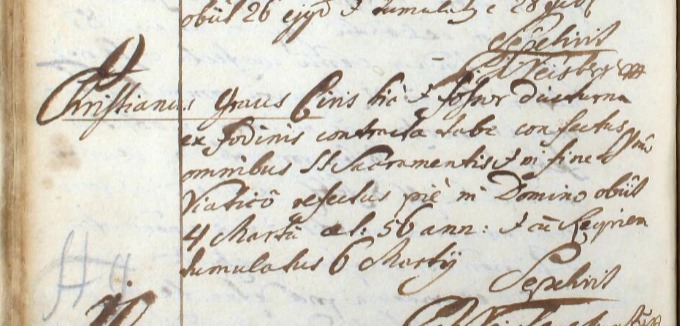 obiit 26 ejusd & tumulat
Sepelivit
Christianus Graus Civis & fossor diuturna
ex fodinis contracta tabe confectus
omnibus SS Sacramentis & in fine
Viaticō refectus piè in Domino obiit
4 Martii aet: 56 ann: & cū Requiem
tumulatus 6 Martij
Sepelivit